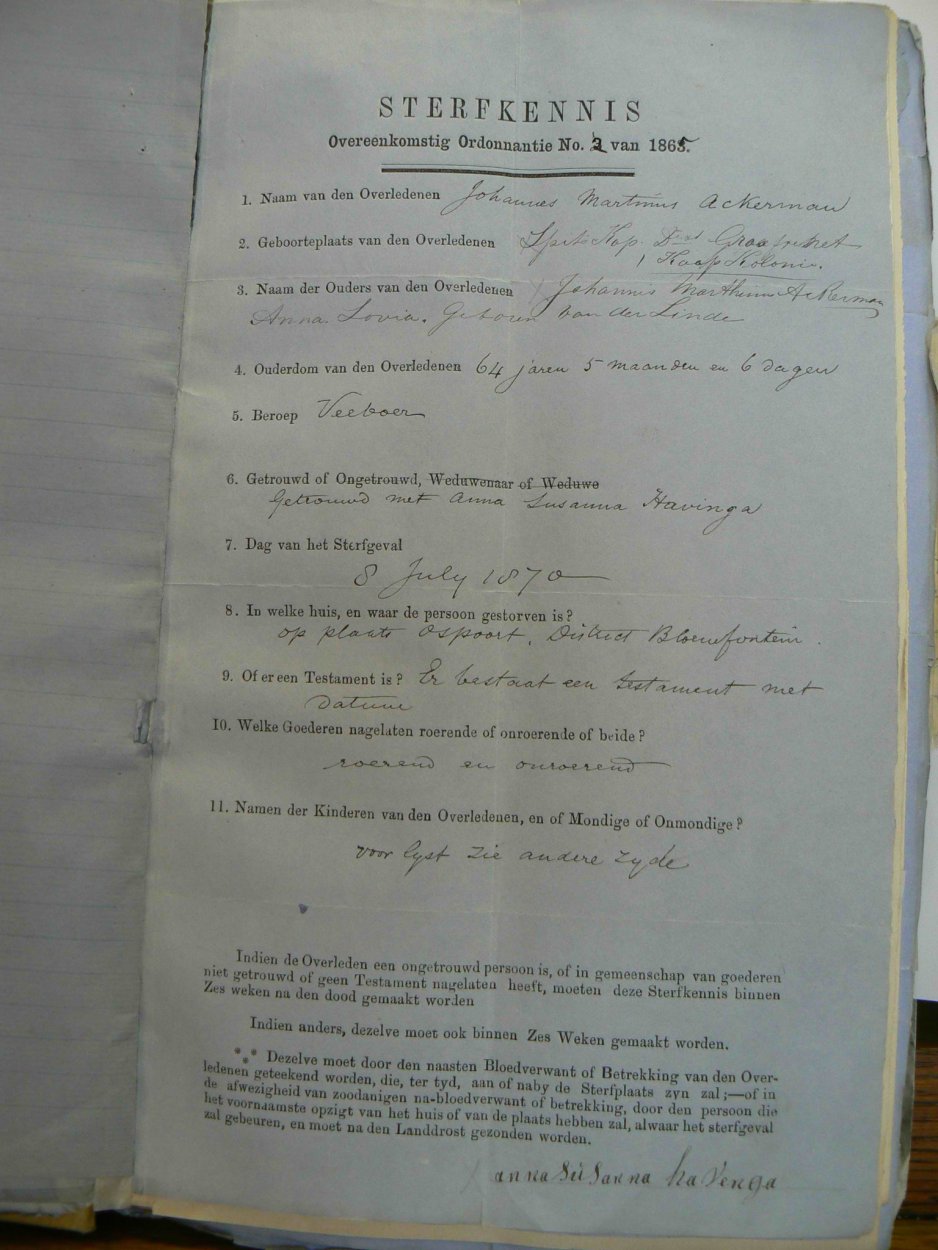 STERFKENNIS
Overeenkomstig Ordonnantie No. 2 van 1865.
1. Naam van den Overledenen Johannes Martinus Ackerman
2. Geboorteplaats van den Overledenen Spits Kop. Dist Graafrinet
Kaap Kolonie.
3. Naam der Ouders van den Overledenen Johannis Marthinus Ackerman
Anna Sovia. Geboren van der Linde
4. Ouderdom van den Overledenen 64 jaren 5 maanden en 6 dagen
5. Beroep Veeboer
6. Getrouwd of Ongetrouwd, Weduwenaar of Weduwe
Getrouwd met Anna Susanna Havinga
7. Dag van het Sterfgeval
8 July 1870
8. In welke huis, en waar de persoon gestorven is?
op plaats Ospoort, District Bloemfontein.
9. Of er een Testament is? Er bestaat een testament met
datum
10. Welke Goederen nagelaten roerende of onroerende of beide?
roerend en onroerend
11. Namen der Kinderen van den Overledenen, en of Mondige of Onmondige?
voor lyst zie andere zyde
Indien de Overleden een ongetrouwd persoon is, of in gemeenschap van goederen
niet getrouwd of geen Testament nagelaten heeft, moeten deze Sterfkennis binnen
Zes weken na den dood gemaakt worden
Indien anders, dezelve moet ook binnen Zes Weken gemaakt worden.
*** Dezelve moet door den naasten Bloedverwant of Betrekking van den Over-
ledenen geteekend worden, die, ter tyd, aan of naby de Sterfplaats zyn zal;—of in
de afwezigheid van zoodanigen na-bloedverwant of betrekking, door den persoon die
het voornaamste opzigt van het huis of van de plaats hebben zal, alwaar het sterfgeval
zal gebeuren, en moet na den Landdrost gezonden worden.
anna Susanna haVenga